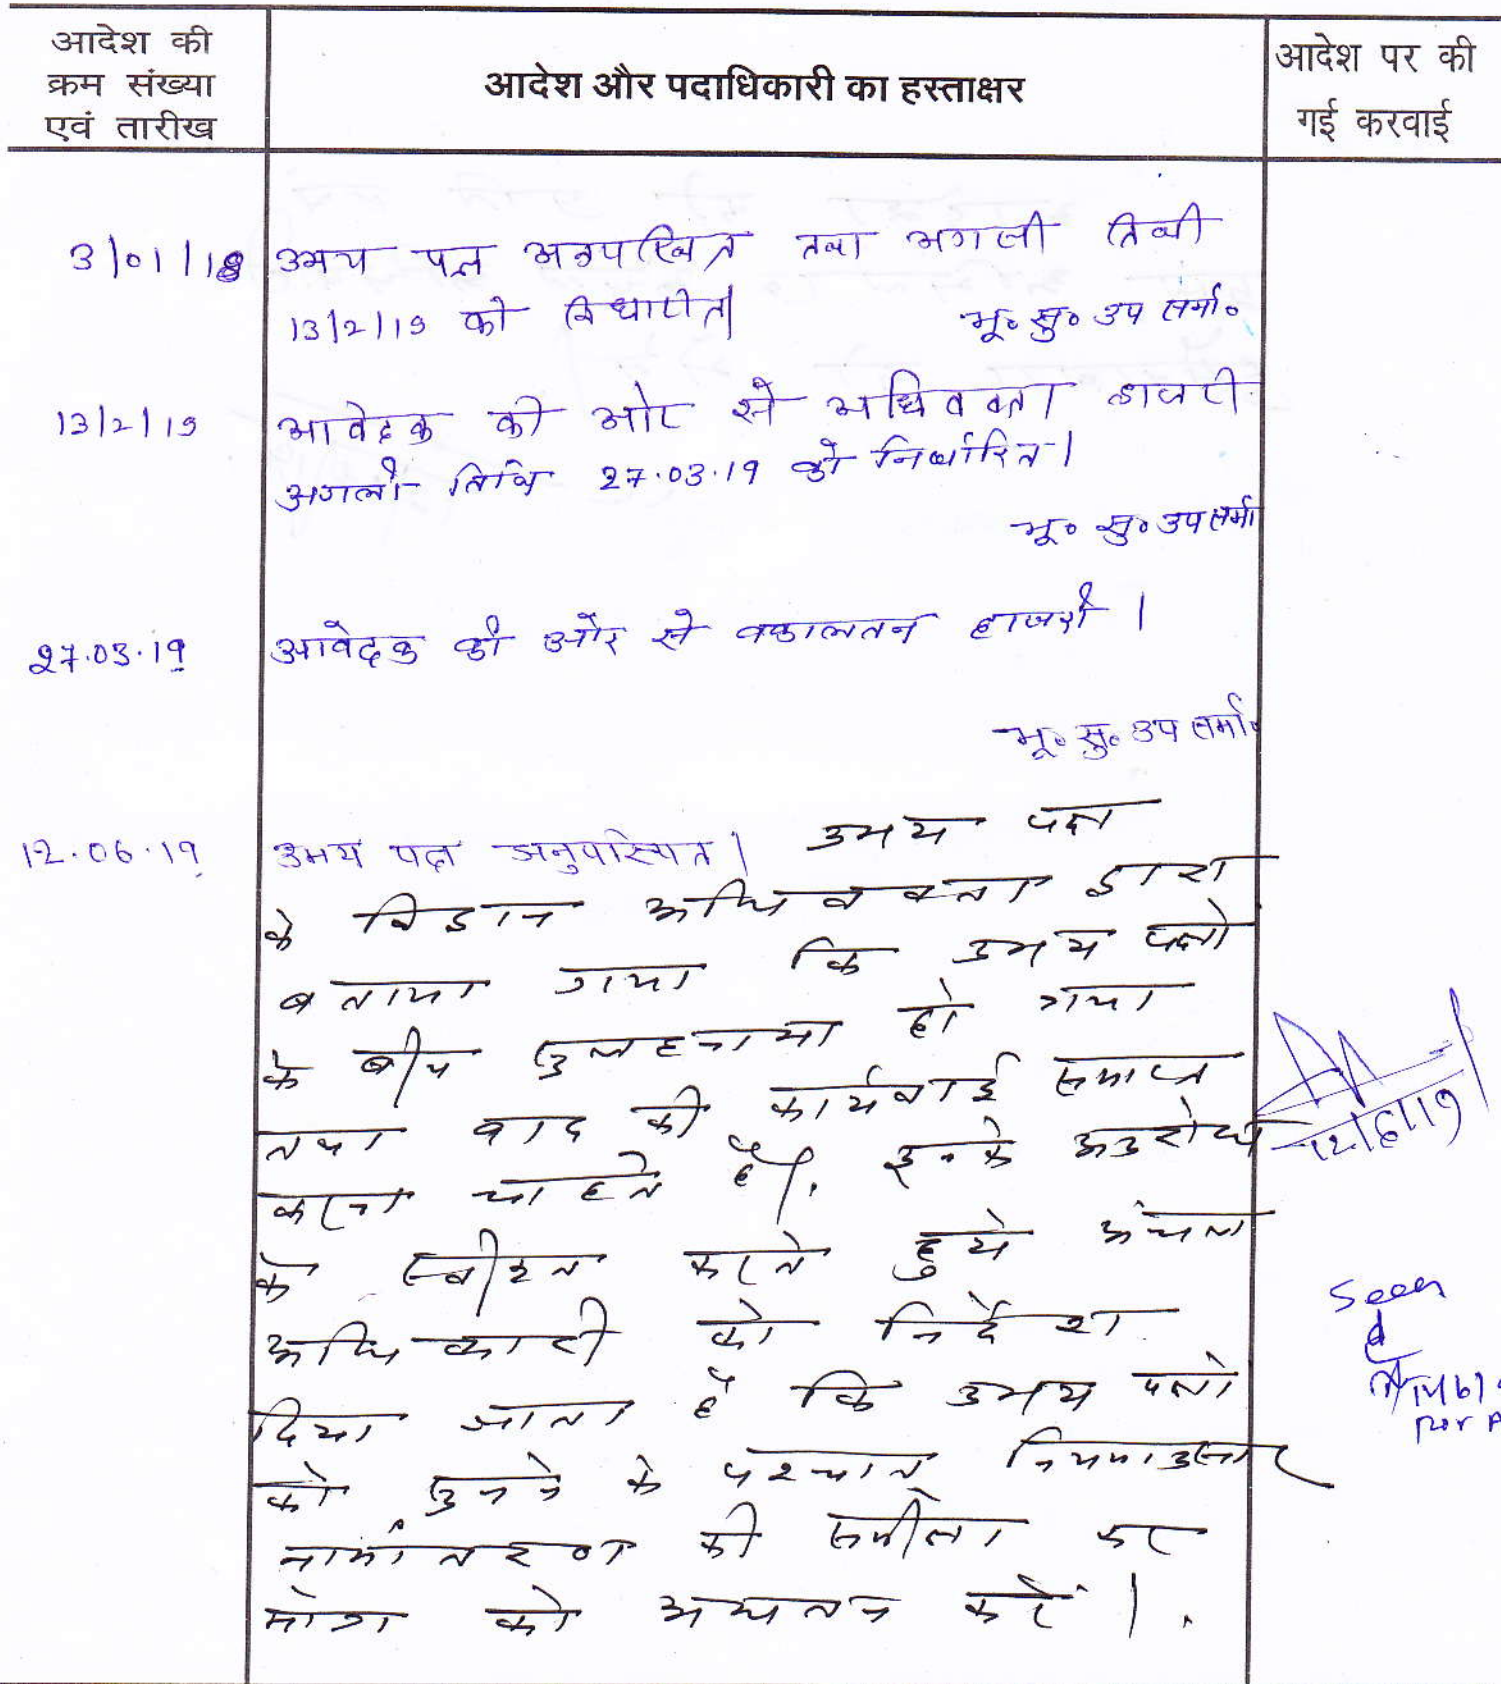 आदेश की
क्रम संख्या
एवं तारीख
आदेश और पदाधिकारी का हस्ताक्षर
आदेश पर की
गई करवाई
3/01/18 उभय पक्ष अनुपस्थित तथा अगली तिथी
13/2/19 को निर्धारित।
भू॰ सु॰ उप समा॰
13/2/19 आवेदक की ओर से अधिवक्ता हाजरी
अगली तिथि 27.03.19 को निर्धारित।
भू॰ सु॰ उप समा
27.03.19 आवेदक की ओर से वकालतन हाजरी।
भू॰ सु॰ उप समा॰
12.06.19 उभय पक्ष अनुपस्थित। उभय पक्ष
के विद्वान अधिवक्ता द्वारा
बताया गया कि उभय पक्षो
के बीच सुलहनामा हो गया
तथा वाद की कार्यवाई समाप्त
करना चाहते हैं। इनके अनुरोध
12/6/19
के स्वीकृत करते हुये अंचल
अधिकारी को निर्देश
Seen
दिया जाता है कि उभय पक्षो
को सुनने के पश्चात् नियमानुसार
नामांतरण की समीक्षा कर
मांग को अद्यतन करें।